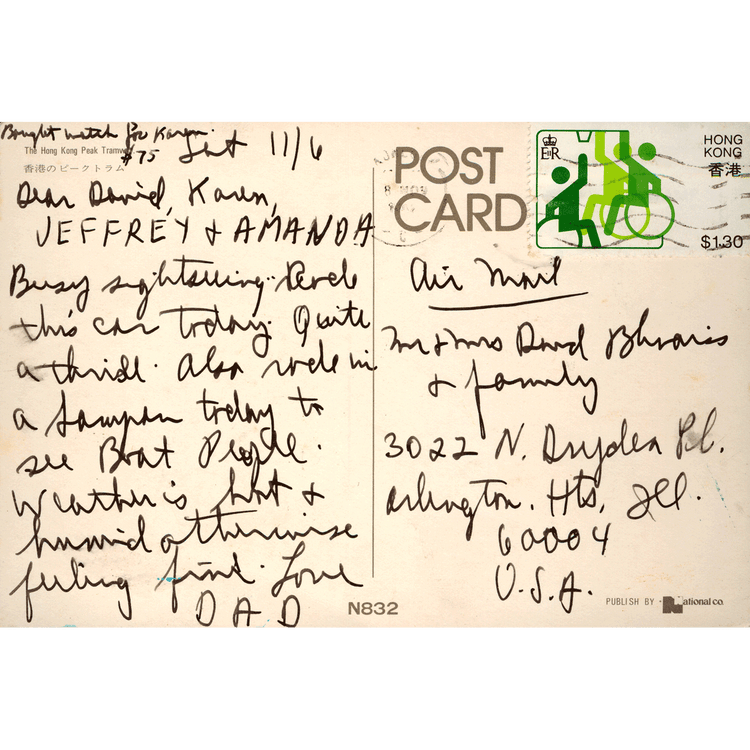 Bought watch for Karen.
$75
The Hong Kong Peak Tramway
香港のピークトラム
Sat 11/6
Dear David, Karen,
JEFFREY & AMANDA
Busy sightseeing. Rode
this car today. Quite
a thrill. Also rode in
a Sampan today to
see Boat People.
Weather is hot &
humid otherwise
feeling fine. Love
DAD
POST
CARD
HONG
KONG
香港
$1.30
E II R
Air Mail
Mr & Mrs David
& family
3022 N. Dryden Pl.
Arlington. Hts, Ill.
60004
U.S.A.
N832
PUBLISH BY National co.